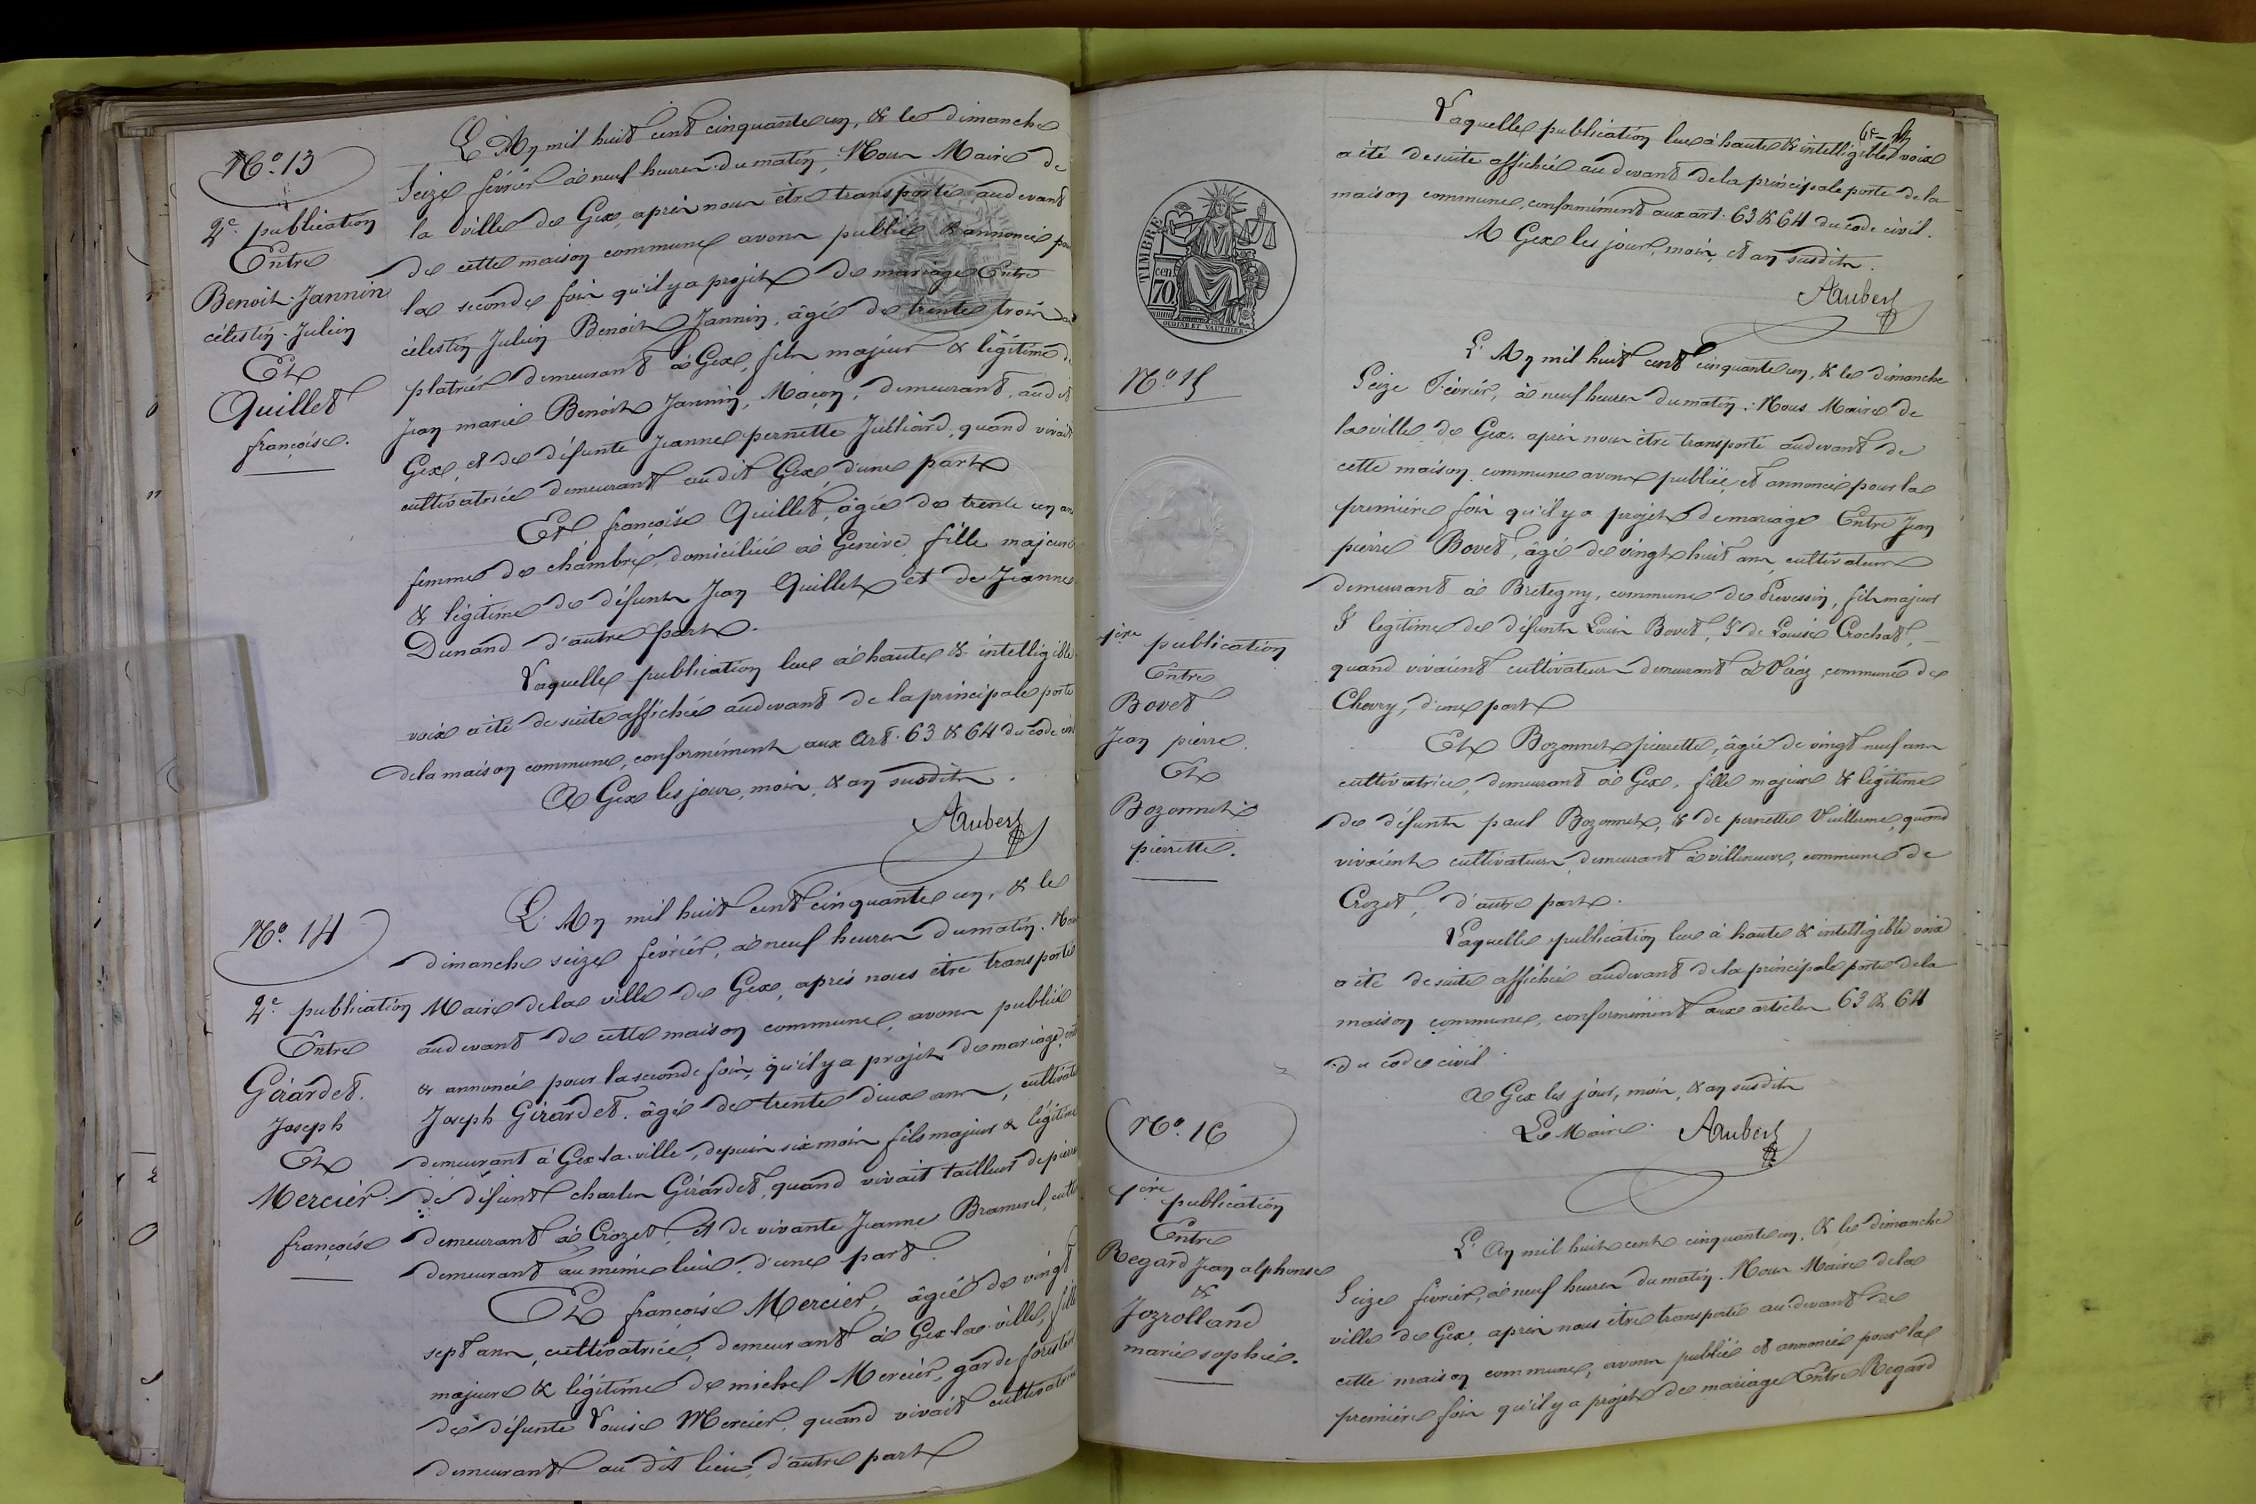 No. 13
2e publication
Entre
Benoit-Jannin
célestin-Julien
Et
Quillet
françoise.
L'An mil huit cent cinquante un, & le dimanche
Seize février à neuf heures du matin, Nous Maire de
la ville de Gex, après nous être transporté au devant
de cette maison commune avons publié & annoncé pour
la seconde fois qu'il y a projet de mariage Entre
célestin Julien Benoit Jannin, âgé de trente trois ans
platrier demeurant à Gex, fils majeur & légitime de
Jean marie Benoit Jannin, Maçon, demeurant, audit
Gex, et de défunte Jeanne pernette Julliard, quand vivait
cultivatrice demeurant au dit Gex d'une part
Et françoise Quillet, âgée de trente un ans
femme de chambre, domiciliée à Genève, fille majeure
& légitime de défunts Jean Quillet et de Jeanne
Dunand d'autre part.
Laquelle publication lue à haute & intelligible
voix a été de suite affichée au devant de la principale porte
de la maison commune, conformément aux Art. 63 & 64 du code civil
A Gex les jour, mois, & an susdits.
Aubert
No. 14
2e publication
Entre
Girardet.
Joseph
Et
Mercier.
françoise
L'An mil huit cent cinquante un, & le
dimanche seize février, à neuf heures du matin. Nous
Maire de la ville de Gex, après nous être transporté
au devant de cette maison commune, avons publié
& annoncé pour la seconde fois, qu'il y a projet de mariage, entre
Joseph Girardet. âgé de trente deux ans, cultivateur
demeurant à Gex-la-ville, depuis six mois fils majeur & légitime
de défunt charles Girardet, quand vivait tailleur de pierre
demeurant à Crozet, et de vivante Jeanne
demeurant au même lieu, d'une part.
Et françoise Mercier, âgée de vingt
sept ans, cultivatrice, demeurant à Gex-la-ville, fille
majeure & légitime de michel Mercier, garde forestier
de défunte Louise Mercier, quand vivait cultivatrice
demeurant au dit lieu, d'autre part
Laquelle publication lue à haute & intelligible voix
a été de suite affichée au devant de la principale porte de la
maison commune, conformément aux art. 63 & 64 du code civil.
A Gex les jour, mois, et an susdits.
Aubert
TIMBRE
70 cen
OUDINÉ ET VAUTHIER
No. 15
1ère publication
Entre
Bovet
Jean pierre.
Et
Bozonnet
pierrette.
L'An mil huit cent cinquante un, & le dimanche
Seize Février, à neuf heures du matin. Nous Maire de
la ville de Gex. après nous être transporté au devant de
cette maison commune avons publié, et annoncé pour la
première fois qu'il y a projet de mariage Entre Jean
pierre Bovet, âgé de vingt huit ans, cultivateur
demeurant à Bretegny, commune de Prevessin, fils majeur
& legitime de défunts Louis Bovet, & de Louise Crochat,
quand vivaient cultivateurs demeurant à Véraz, commune de
Chevry, d'une part
Et Bozonnet pierrette, âgée de vingt neuf ans
cultivatrice, demeurant à Gex, fille majeure & légitime
de défunts paul Bozonnet, & de pernette Vuillerme, quand
vivaient cultivateurs, demeurant à villeneuve, commune de
Crozet, d'autre part.
Laquelle publication lue à haute & intelligible voix
a été de suite affichée au devant de la principale porte de la
maison commune, conformément aux articles 63 & 64
du code civil
A Gex les jour, mois, & an susdits
Le Maire. Aubert
No. 16
1ère publication
Entre
Regard Jean alphonse
&
Jozrolland
marie sophie.
L'An mil huit cent cinquante un, & le dimanche
Seize février, à neuf heures du matin. Nous Maire de la
ville de Gex, après nous être transporté au devant de
cette maison commune, avons publié et annoncé pour la
première fois qu'il y a projet de mariage Entre Regard